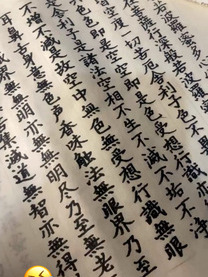 若波羅蜜多
度一切苦厄舍利子色不
色即是空空即是色受想行識亦
舍利子是諸法空相不生不滅不垢不淨
不增不減是故空中無色無受想行識無眼
耳鼻舌身意無色聲香味觸法無眼界乃至
無無明亦無無明尽乃至無老
集滅道無智亦無得